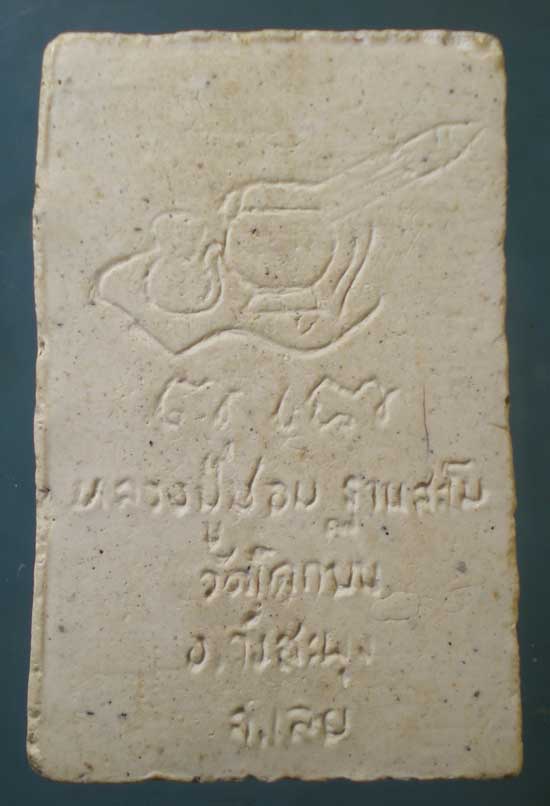 หลวงปู่ชอบ ฐานสโม
วัดโคกมน
อ.วังสะพุง
จ.เลย